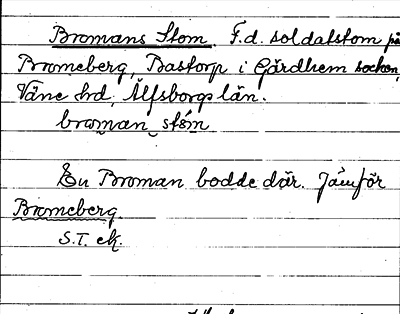 Bromans Stom. F.d. soldatstom på
Bromeberg, Bastorp i Gärdhem socken,
Väne hd, Älfsborgs län.
broman stom
En Broman bodde där. Jämför
Bromeberg
S.T. ek.